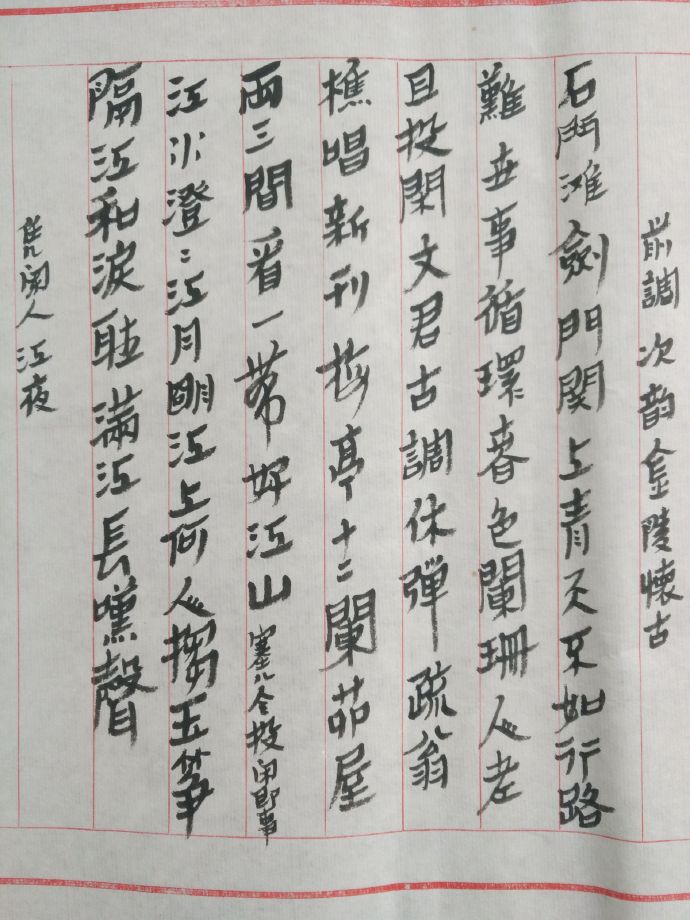 前調 次韵金陵懷古
石門滩劍門関上青天不如行路
難世事循環春色闌珊人老
且投閑文君古調休弹疏翁
樵唱新刊梅亭十二闌茆屋
兩三間看一帶好江山 寨儿令投闲即事
江水澄〻江月明江上何人搊玉筝
隔江和淚聴滿江長嘆聲
凭闌人江夜